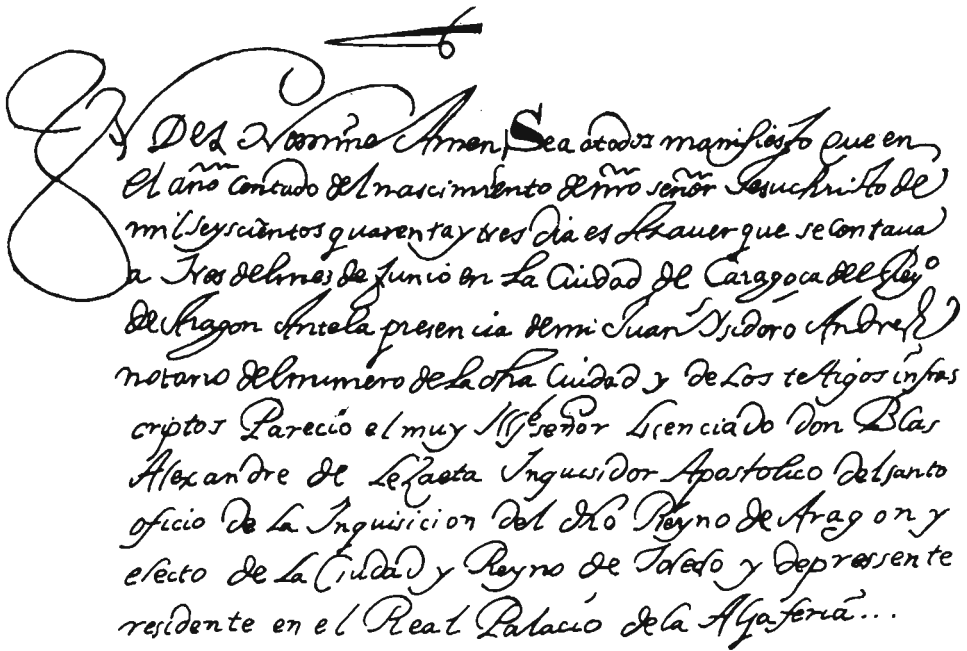 En Dei Nomine Amen, Sea atodos manifiesto que en
el año contado del nascimiento de nrõ señor Jesuchristo de
mil seyscientos quarenta y tres dia es Asauer que se contaua
a Tres del mes de Junio en La Ciudad de Caragoça del Reyº
de Aragon Antela presencia de mi Juan Isidoro Andres
notario del numero de La dha Ciudad y de Los testigos infras
criptos Parecio el muy Illᵉ señor Licenciado don Blas
Alexandre de Lezaeta Inquisidor Apostolico del santo
oficio de La Inquisicion del dho Reyno de Aragon y
electo de La Ciudad y Reyno de Toledo y depressente
residente en el Real Palacio de la Aljaferia...